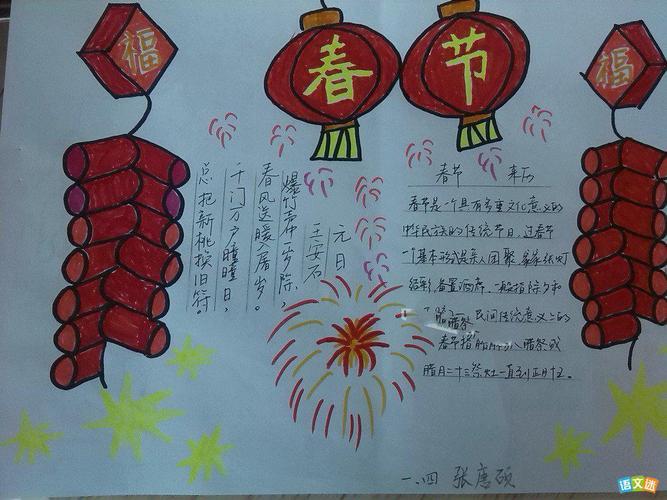 福
春节
福
元日
王安石
爆竹声一岁除，
春风送暖入屠苏。
千门万户曈曈日，
总把新桃换旧符。
春节 来历
春节是个具有多重文化意义的
中华民族的传统节日，过春节
一个基本形式是亲人团聚
结彩备置酒席，一般指除夕和
民间传统意义上的
春节指腊祭或
腊月二十三祭灶一直到正月十五。
一、四 张唐硕
语文迷